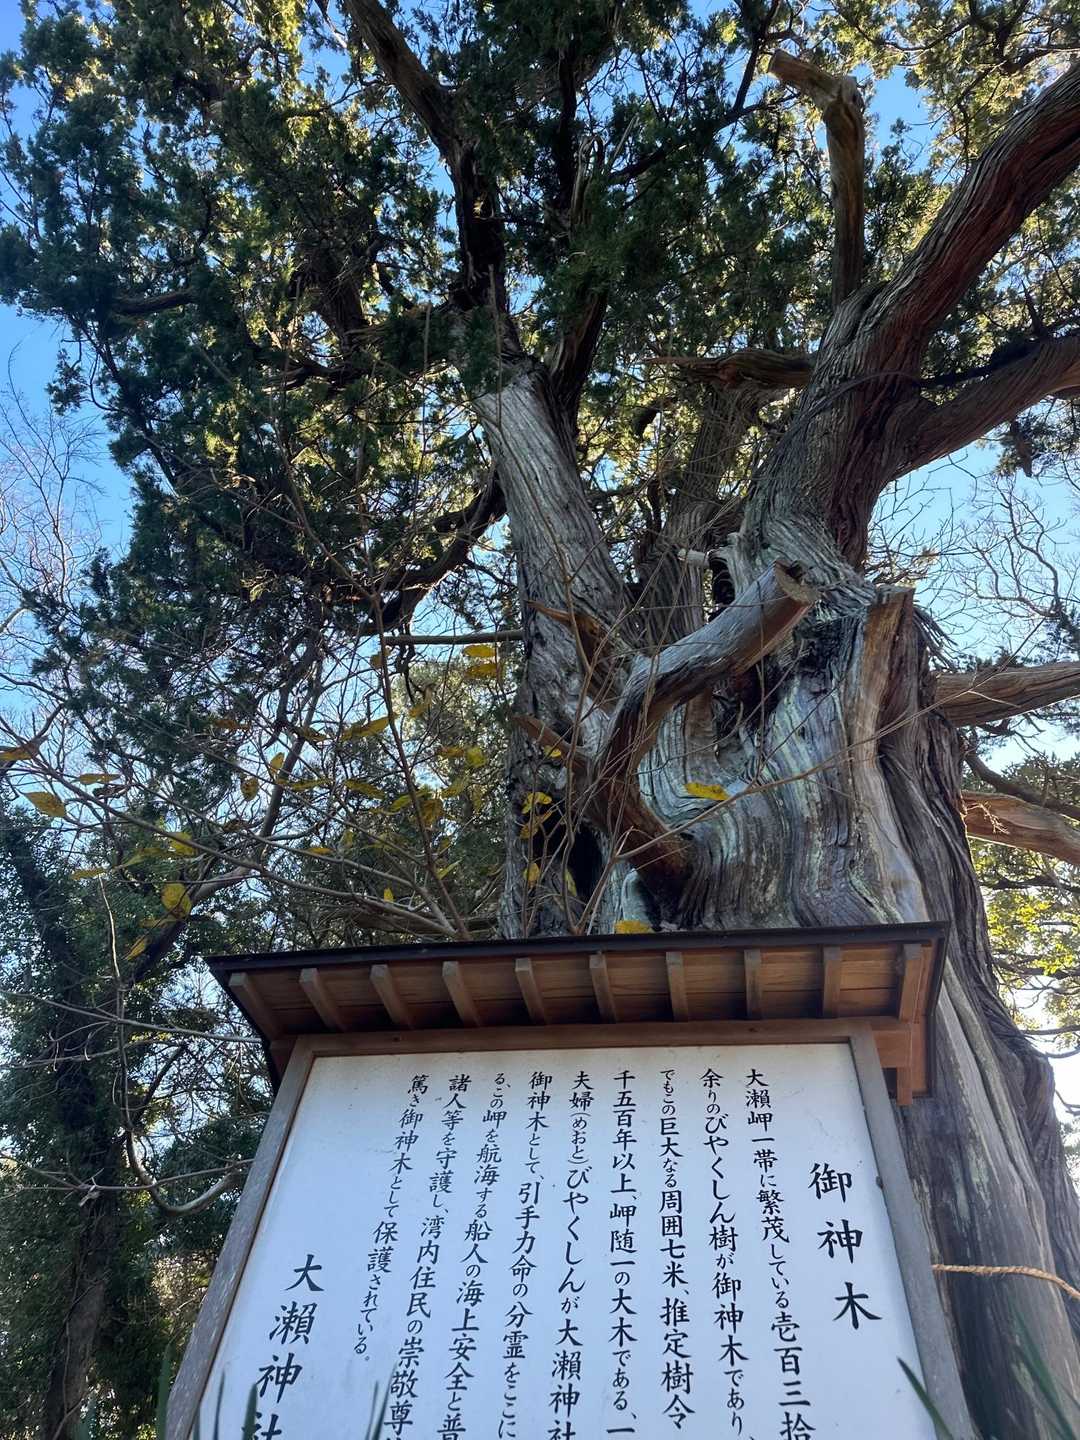 御神木
大瀬岬一帯に繁茂している壱百三拾
余りのびやくしん樹が御神木であり、
でもこの巨大なる周囲七米、推定樹令
千五百年以上、岬随一の大木である、一
夫婦(めおと)びやくしんが大瀬神社
御神木として、引手力命の分霊をここに
る、この岬を航海する船人の海上安全と普
諸人等を守護し、湾内住民の崇敬尊
篤き御神木として保護されている。
大瀬神社